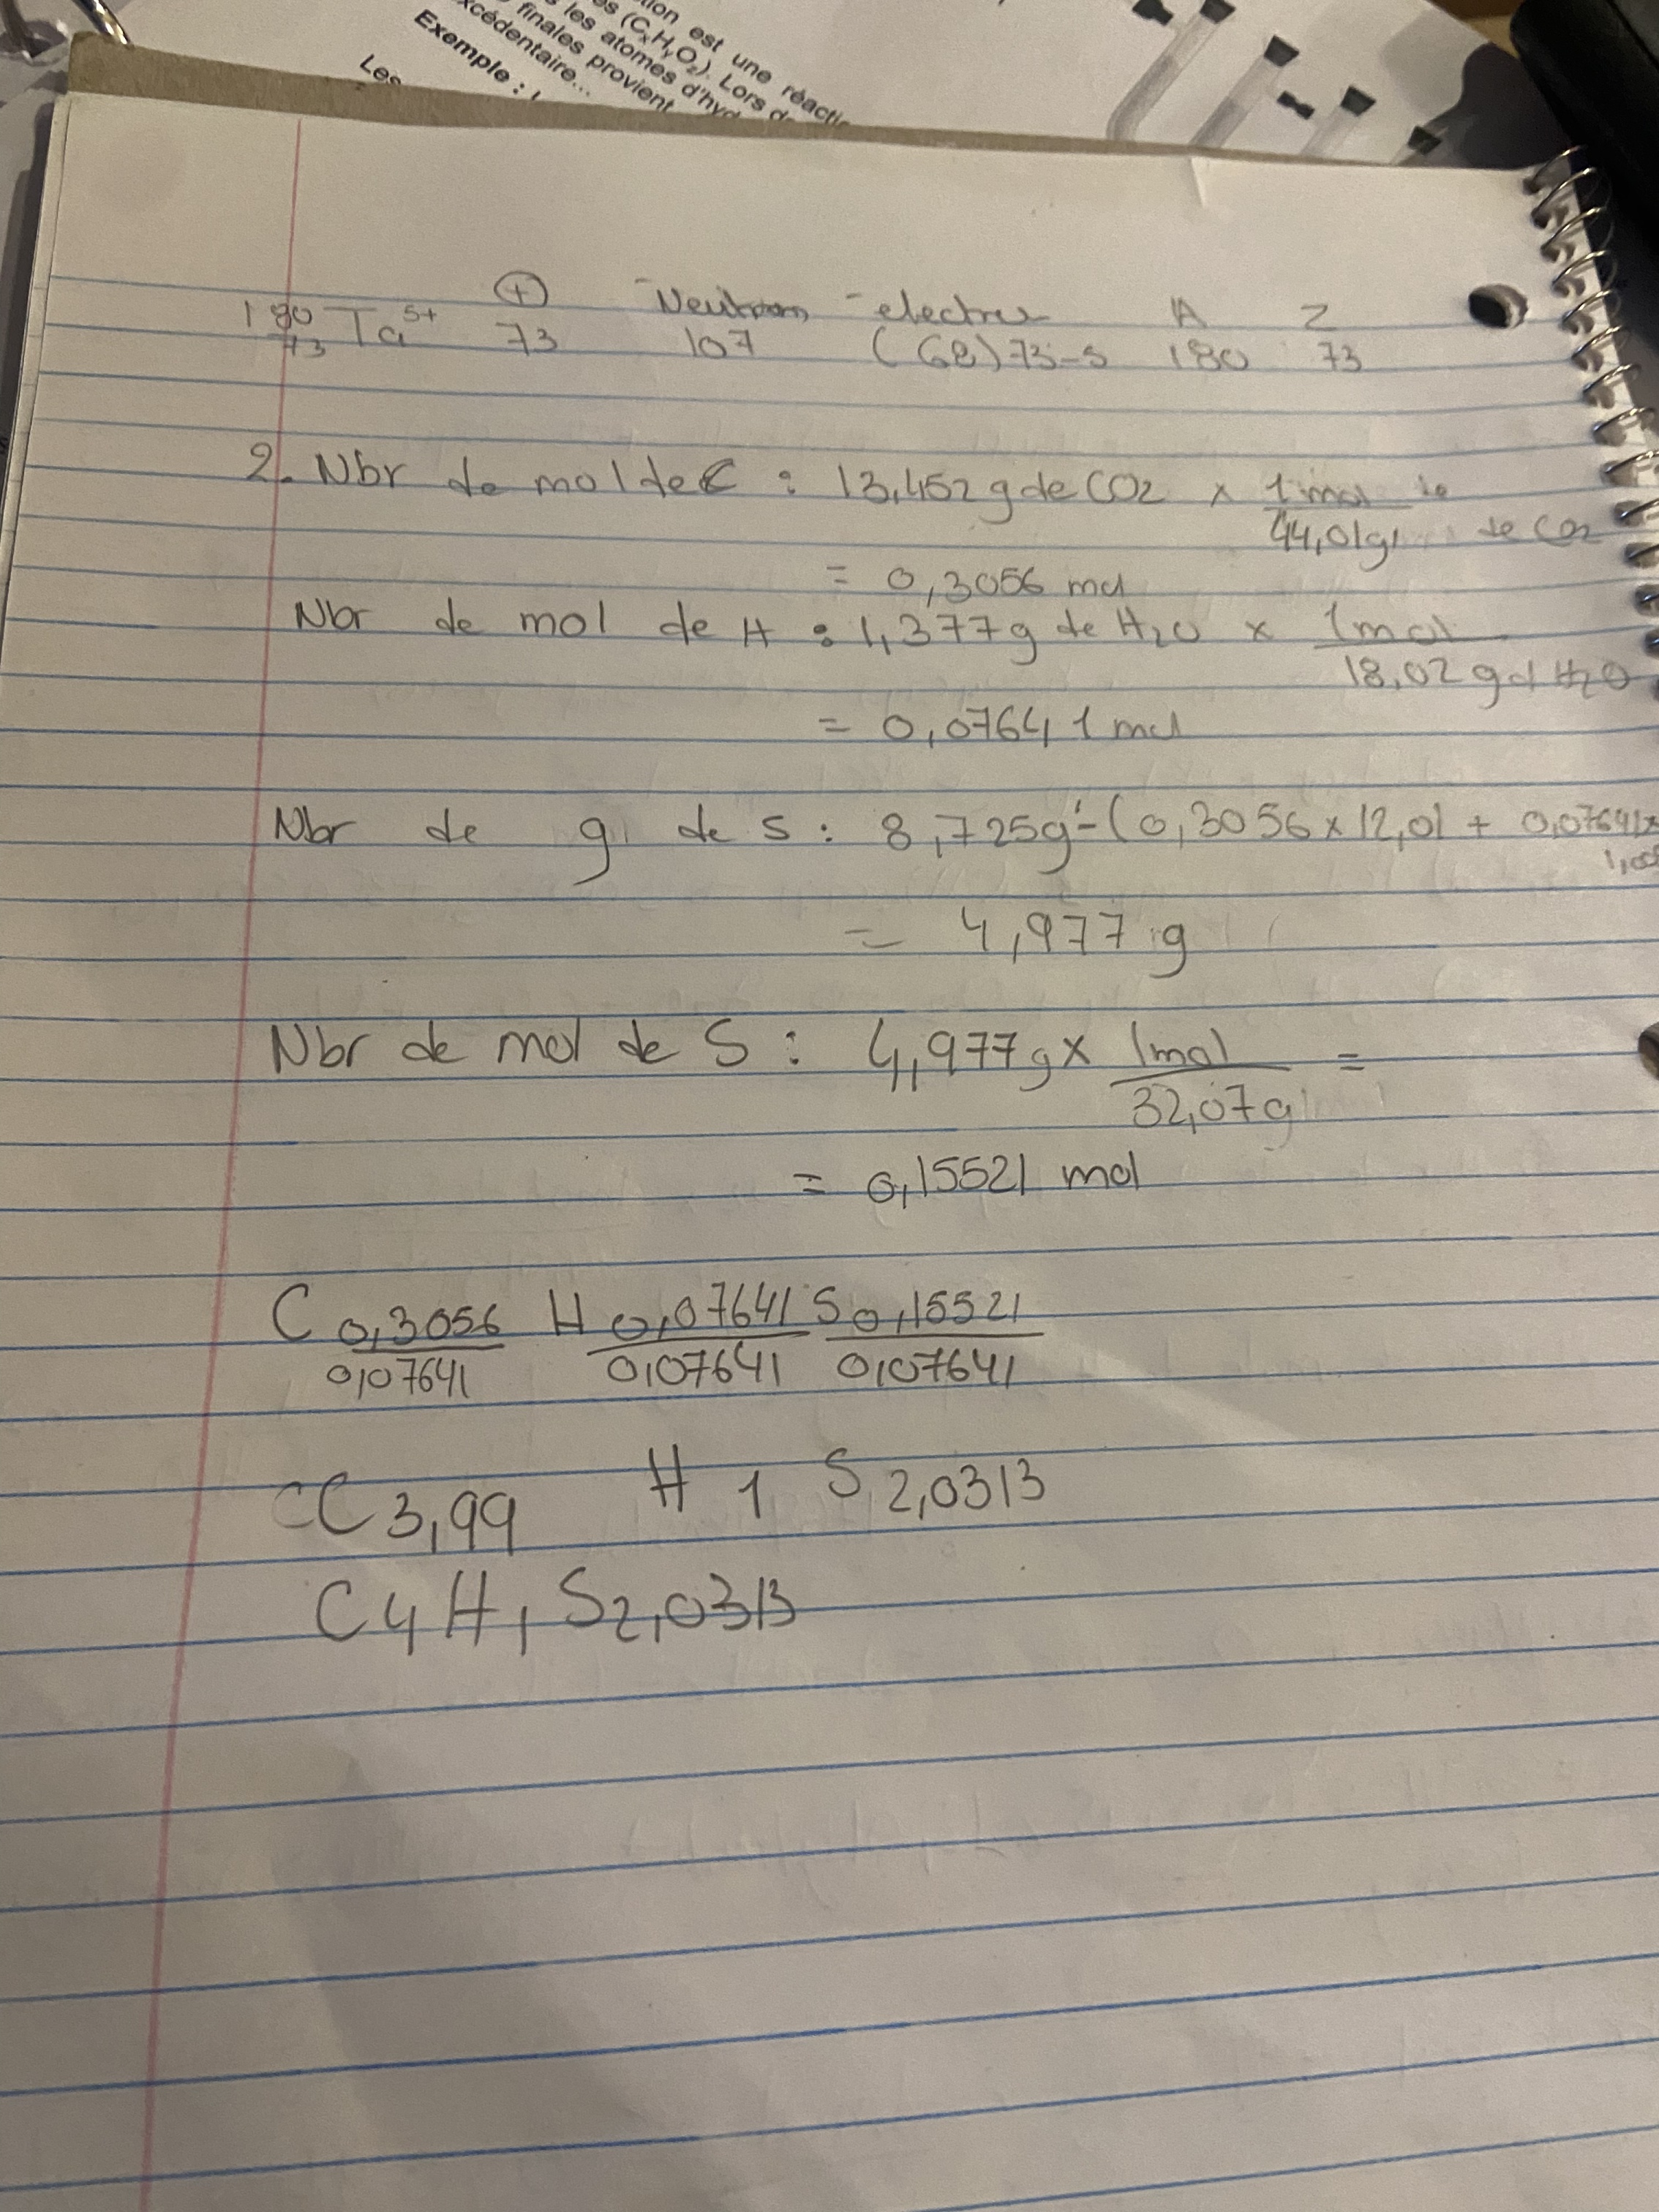 tion est une réactio
es (CxHyO2). Lors de
s les atomes d'hyd
finales provient
xcédentaire...
Exemple :
Les
⊕ Neutron electro A Z
180 73 Ta 5+ 73 107 (68) 73-5 180 73
2. Nbr de mol de C : 13,452 g de CO2 x 1 mol de
44,01g de CO2
= 0,3056 mol
Nbr de mol de H : 1,377g de H2O x 1 mol
18,02 g d H2O
= 0,07641 mol
Nbr de g de S : 8,725g - (0,3056 x 12,01 + 0,07641x
1,00
= 4,977 g
Nbr de mol de S : 4,977g x 1mol =
32,07g
= 0,15521 mol
C 0,3056 H 0,07641 S 0,15521
0,07641 0,07641 0,07641
C 3,99 H 1 S 2,0313
C4 H1 S2,0313